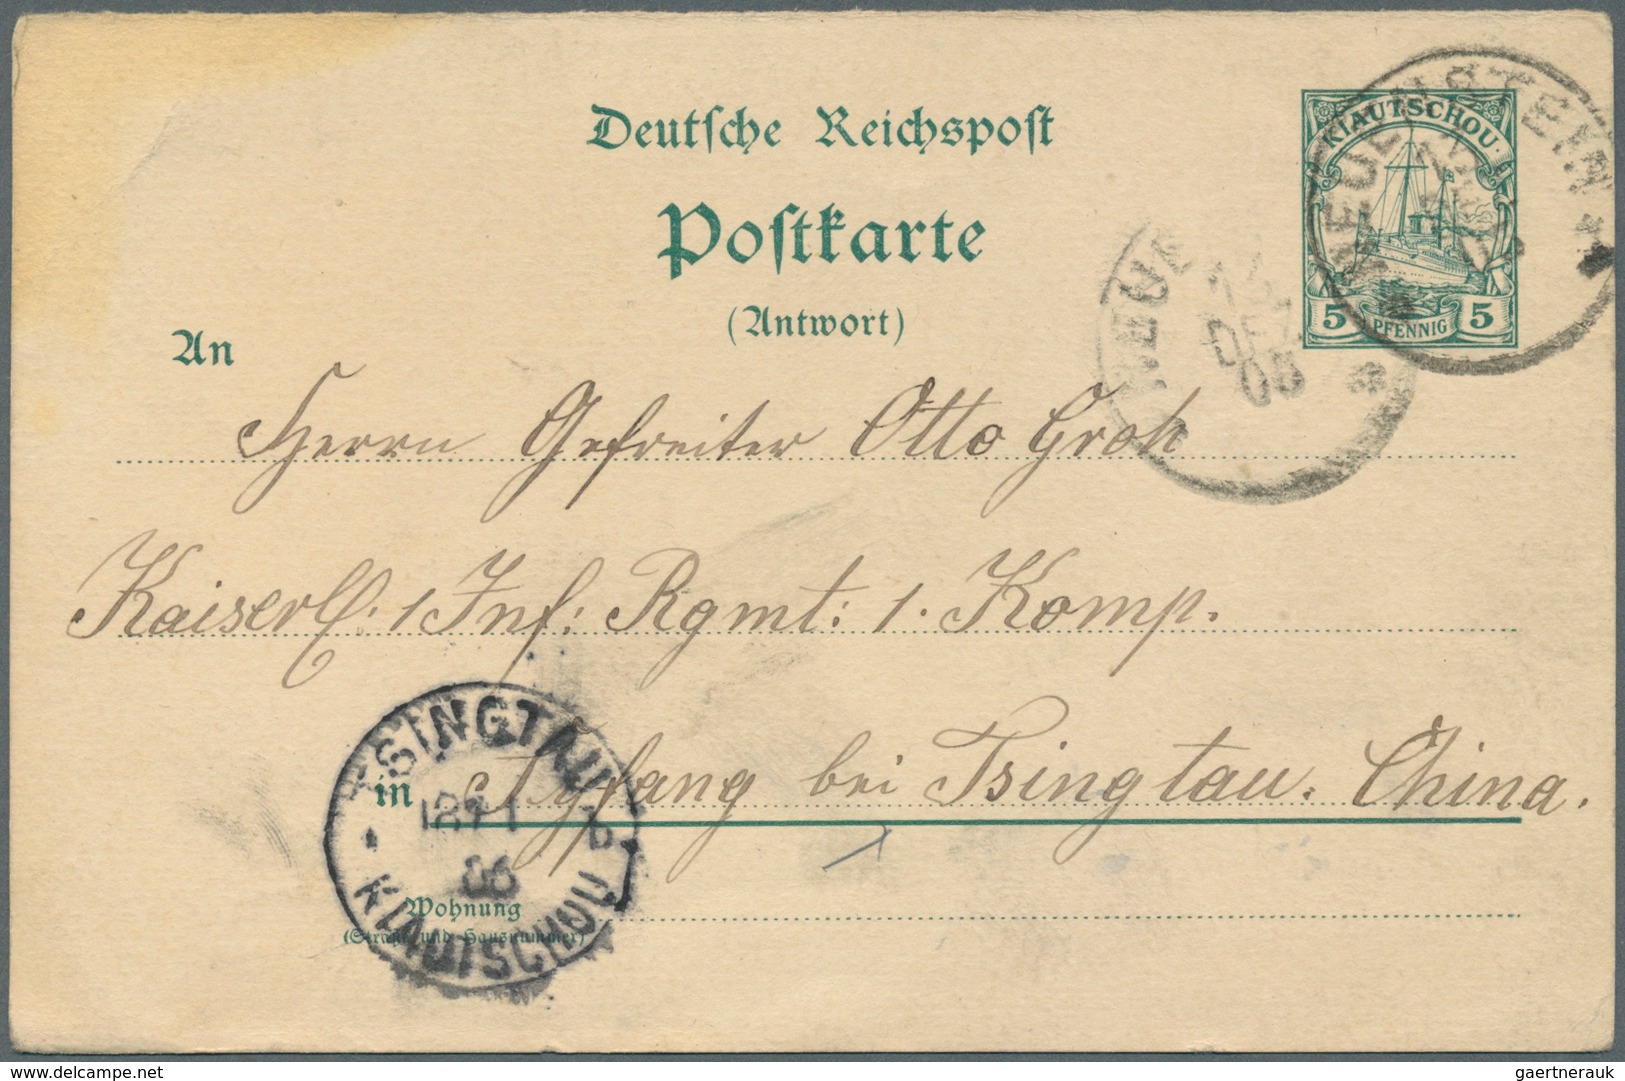 Deutsche Reichspost
Postkarte
(Antwort)
KIAUTSCHOU
5 PFENNIG 5
An
Herrn Gefreiter Otto Groh
Kaiserl. 1 Inf: Rgmt: 1. Komp.
in Syfang bei Tsingtau. China.
Wohnung
(Straße und Hausnummer)
DEZ
05
TSINGTAU
b
06
KIAUTSCHOU
delcampe.net
gaertnerauk